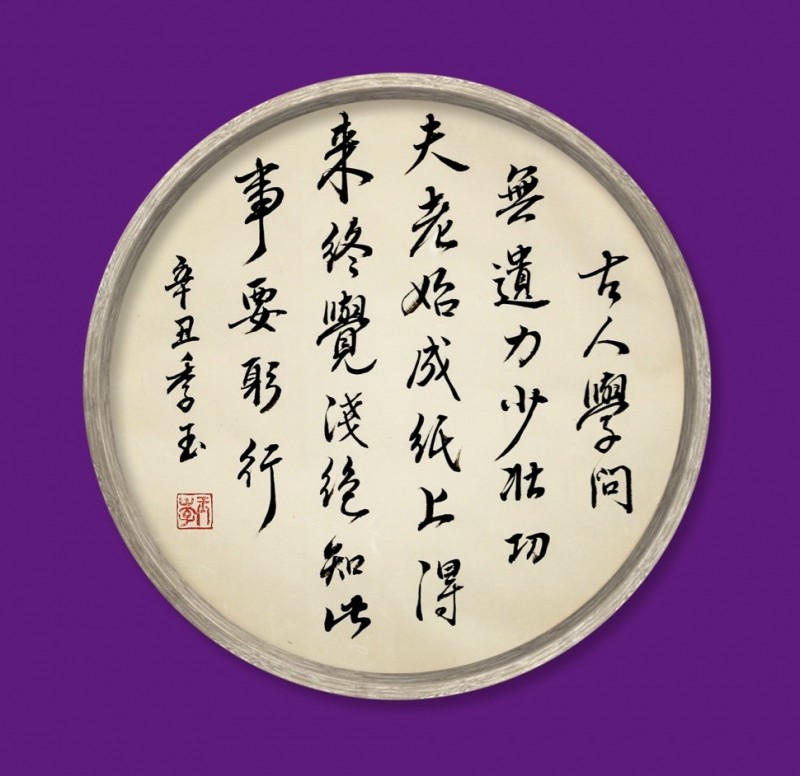 古人學問
無遺力少壯功
夫老始成紙上得
来終覺淺絕知此
事要躬行
辛丑季玉